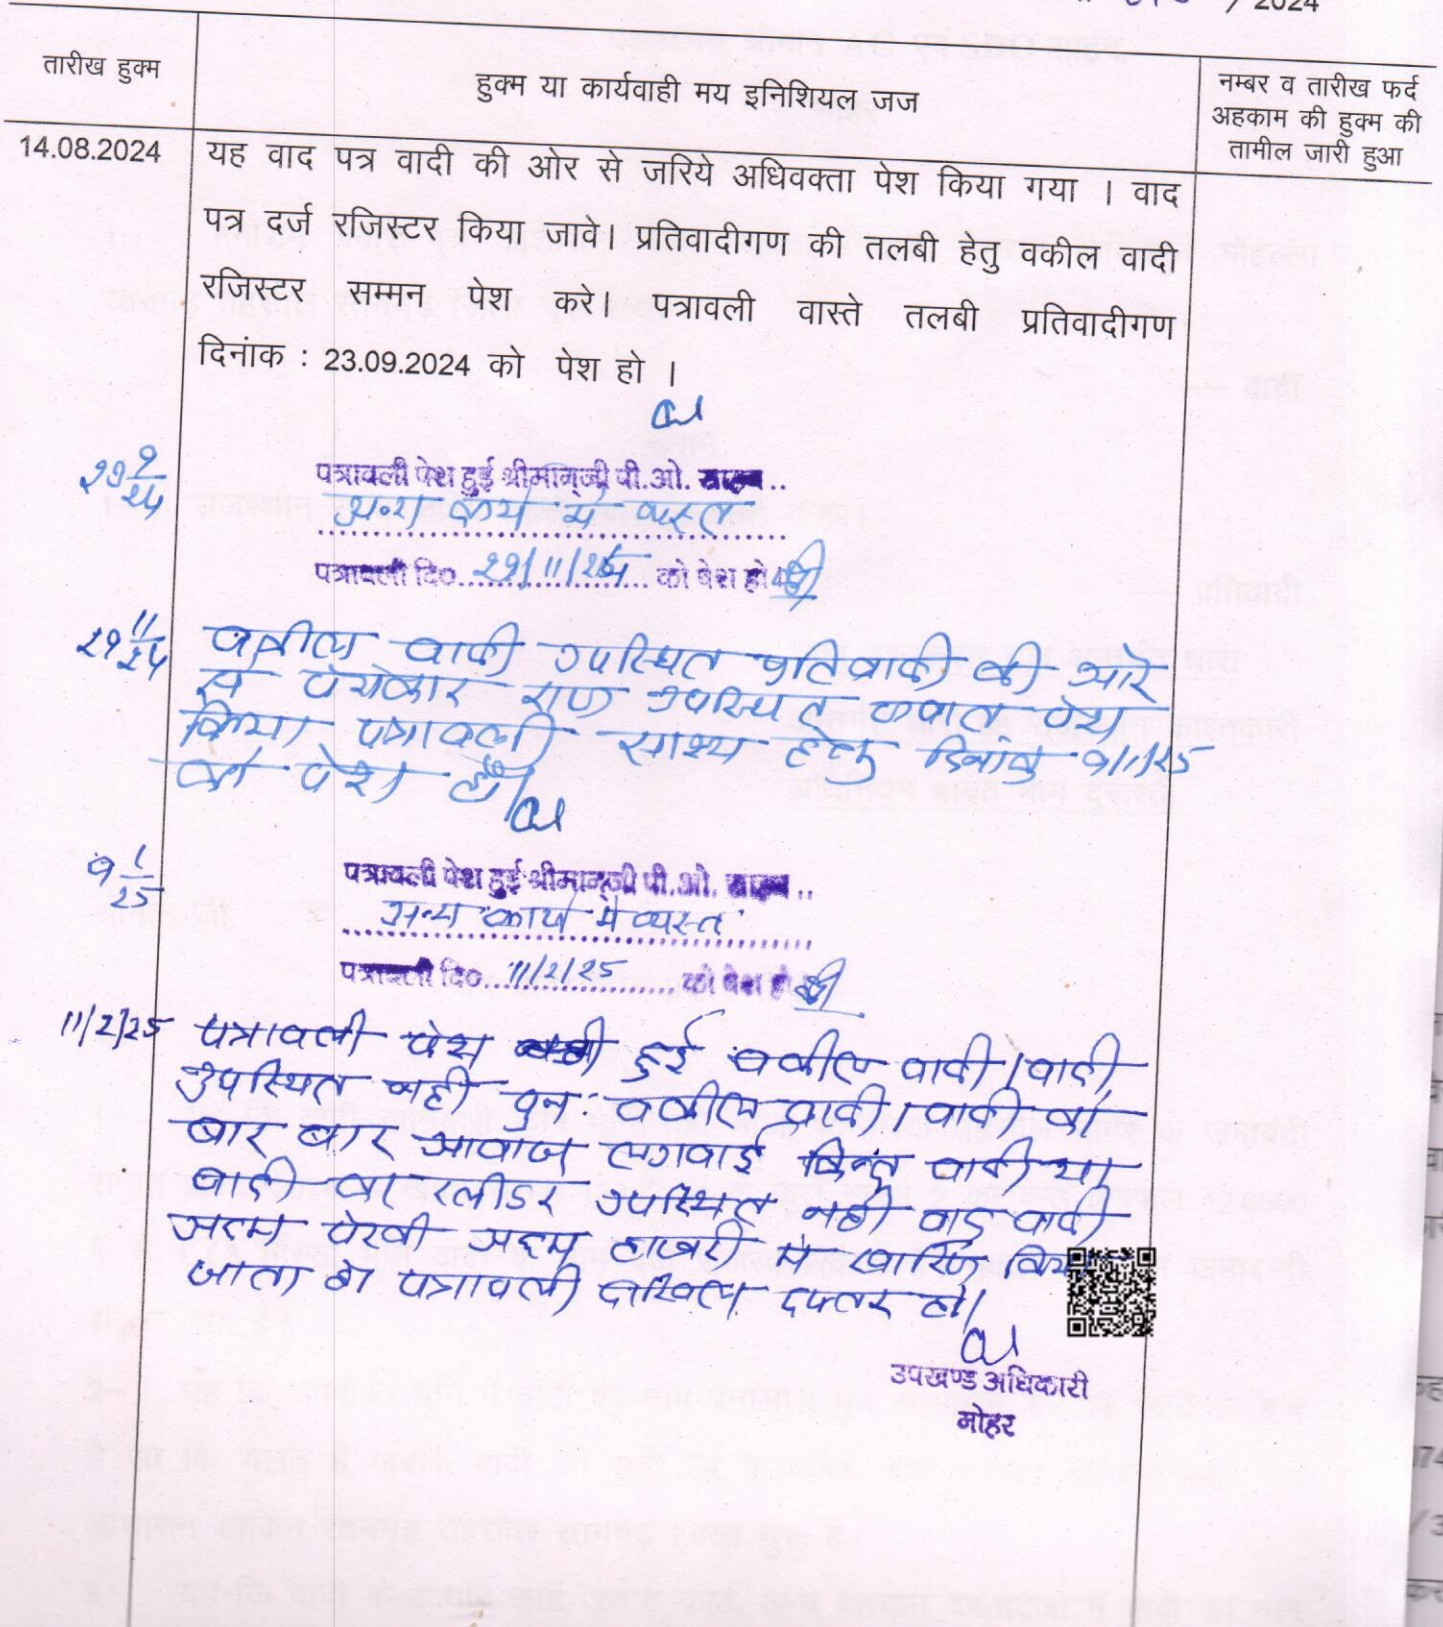 / 2024
तारीख हुक्म
हुक्म या कार्यवाही मय इनिशियल जज
नम्बर व तारीख फर्द
अहकाम की हुक्म की
तामील जारी हुआ
14.08.2024
यह वाद पत्र वादी की ओर से जरिये अधिवक्ता पेश किया गया । वाद
पत्र दर्ज रजिस्टर किया जावे। प्रतिवादीगण की तलबी हेतु वकील वादी
रजिस्टर सम्मन पेश करे। पत्रावली वास्ते तलबी प्रतिवादीगण
दिनांक : 23.09.2024 को पेश हो ।
23 9/24
पत्रावली पेश हुई श्रीमान्जी पी.ओ. साहब..
अन्य कार्य मे व्यस्त
पत्रावली दि०. 29/11/24 को पेश हो
29 11/24
वकील वादी उपस्थित प्रतिवादी की ओर
से पेरोकार राज उपस्थित जवाब पेश
किया पत्रावली साक्ष्य हेतु दिनांक 9/1/25
को पेश हो।
9 1/25
पत्रावली पेश हुई श्रीमान्जी पी.ओ. साहब..
अन्य कार्य मे व्यस्त
पत्रावली दि०. 11/2/25 को पेश हो
11/2/25
पत्रावली पेश हुई वकील वादी / वादी
उपस्थित नही पुनः वकील वादी / वादी को
बार बार आवाज लगवाई किन्तु वादी या
वादी का प्लीडर उपस्थित नही वाद वादी
अदम पेरवी अदम हाजरी मे खारिज किया
जाता है पत्रावली दाखिल दफ्तर हो।
उपखण्ड अधिकारी
नोहर